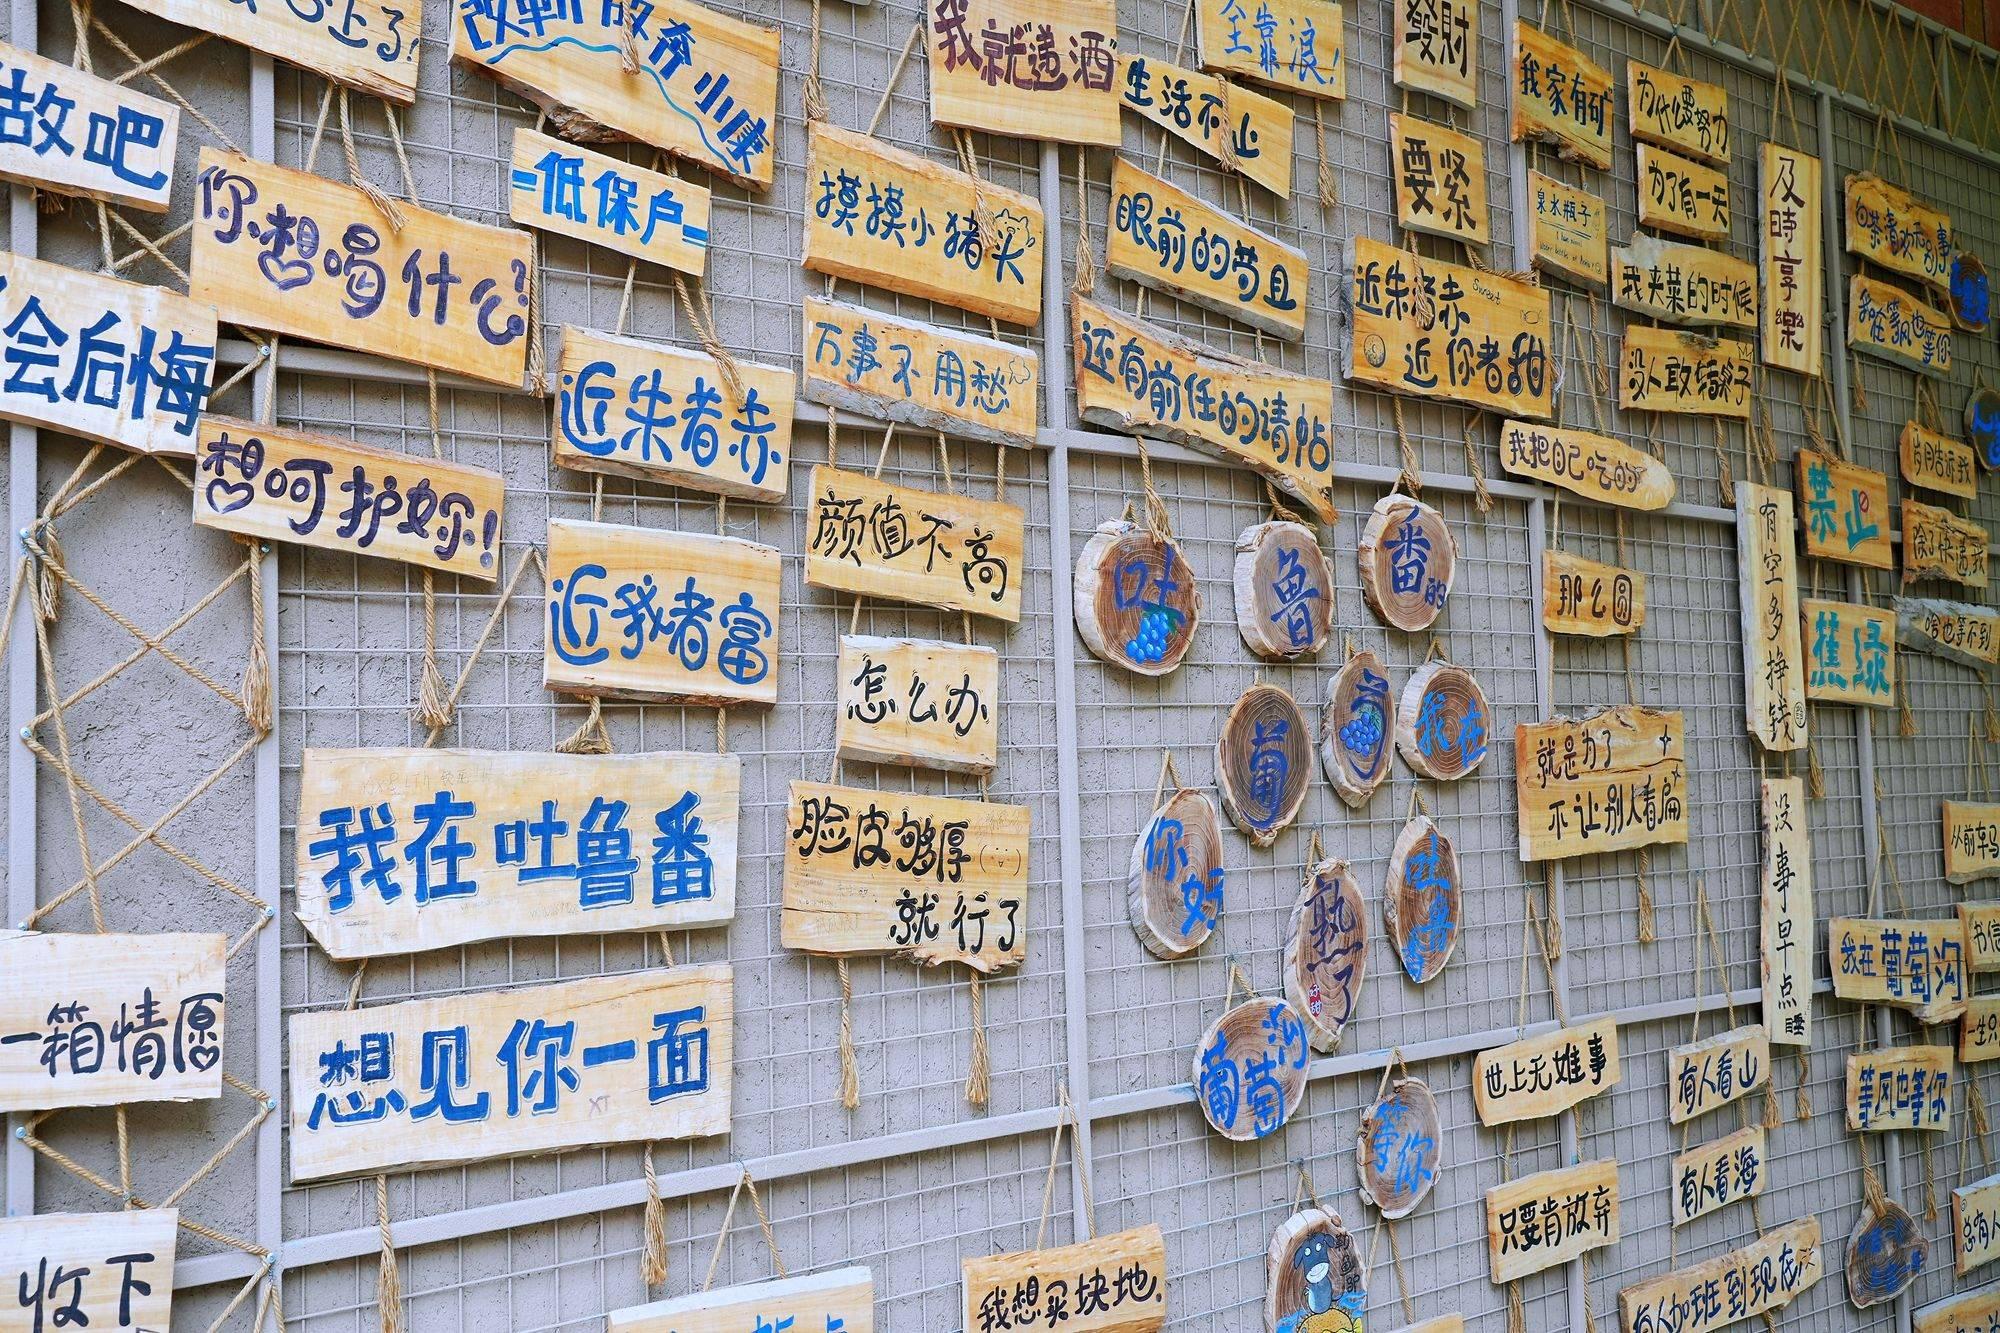 做吧
会后悔
一箱情愿
收下
你想喝什么?
想呵护妳!
我在吐鲁番
想见你一面
改革放奔小康
低保户
近朱者赤
近我者富
摸摸小猪头
万事不用愁
颜值不高
怎么办
脸皮够厚
就行了
我就"递酒"
生活不止
眼前的苟且
还有前任的请帖
全靠浪!
發財
要紧
近朱者赤
Sweet
近你者甜
吐
鲁
番的
葡
萄
我在
你好
熟了
好甜
吐鲁番
葡萄沟
等你
我想买块地,
我家有矿
泉水瓶子
为什么要努力
为了有一天
我夹菜的时候
没人敢转桌子
我把自己吃的
那么圆
就是为了
不让别人看扁
世上无难事
只要肯放弃
有人看山
有人看海
有人加班到现在
及時享樂
有空多挣钱
没事早点睡
禁止
蕉绿
我在等风也等你
除了快递,我
啥也等不到
从前车马
书信
一生只
我在葡萄沟
等风也等你
总有人